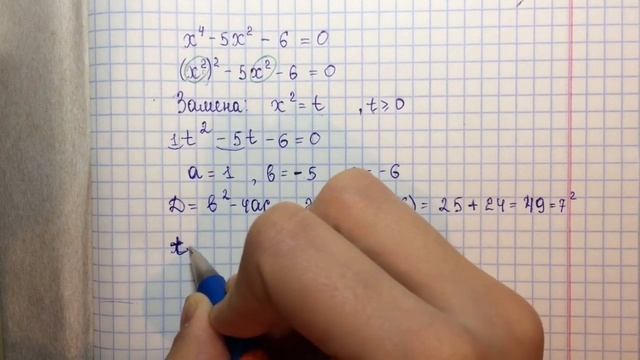 x⁴ - 5x² - 6 = 0
(x²)² - 5x² - 6 = 0
Замена: x² = t , t ⩾ 0
1t² - 5t - 6 = 0
a = 1 , в = -5 = -6
Д = в² - 4ac ) = 25 + 24 = 49 = 7²
t